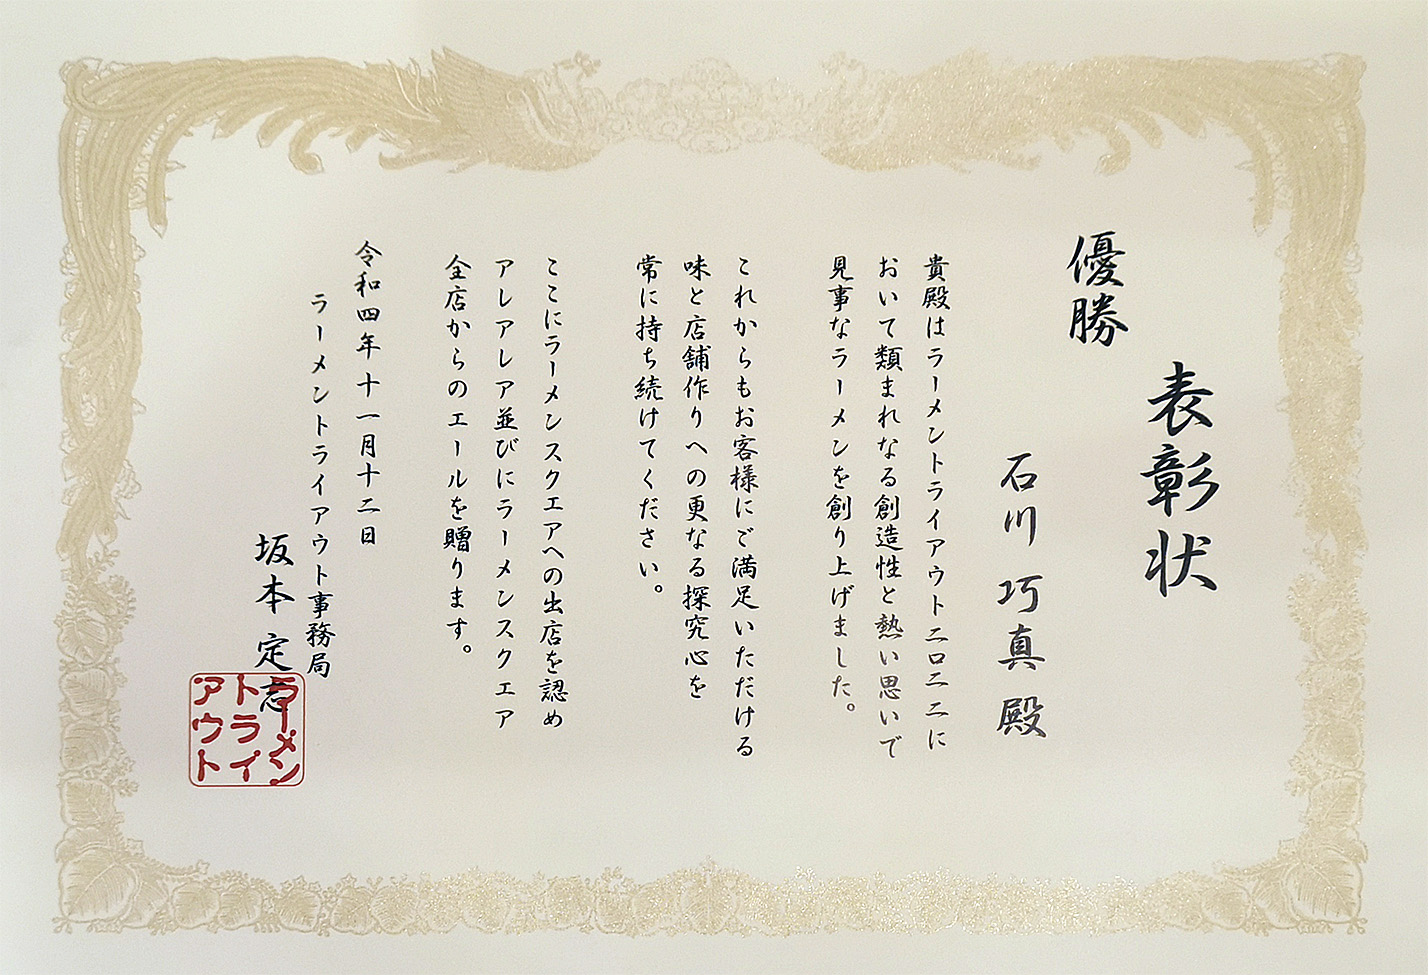 表彰状
優勝
石川 巧真 殿
貴殿はラーメントライアウト二〇二二に
おいて類まれなる創造性と熱い思いで
見事なラーメンを創り上げました。
これからもお客様にご満足いただける
味と店舗作りへの更なる探究心を
常に持ち続けてください。
ここにラーメンスクエアへの出店を認め
アレアレア並びにラーメンスクエア
全店からのエールを贈ります。
令和四年 十一月十二日
ラーメントライアウト事務局
坂本 定志
ラーメン
トライ
アウト